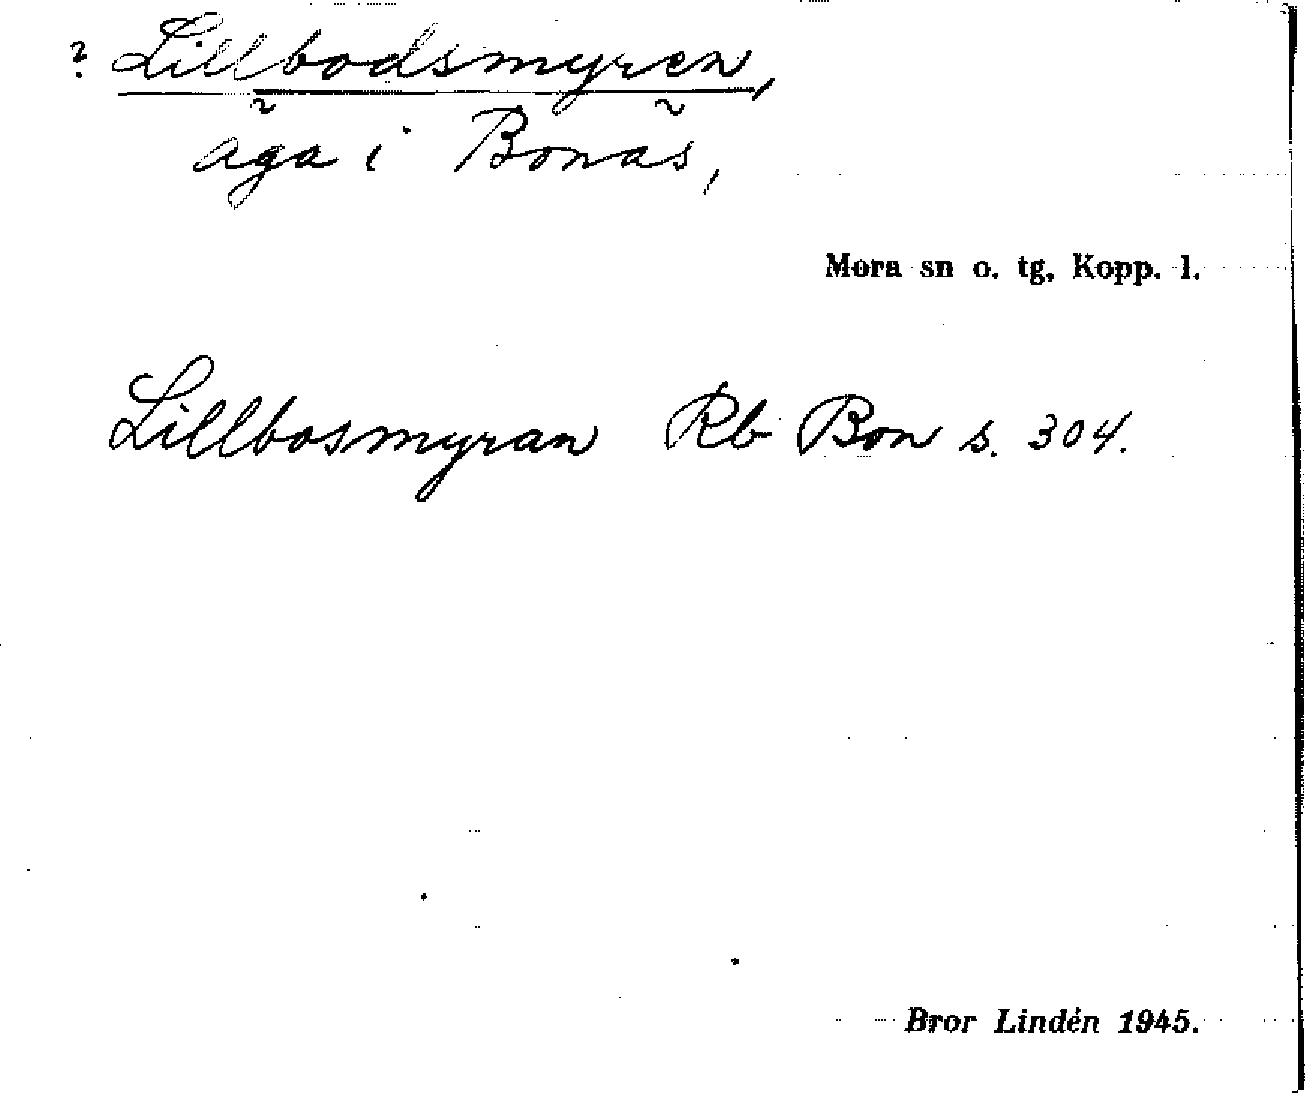 ? Lillbodsmyren,
äga i Bonäs,
Mora sn o. tg, Kopp. l.
Lillbosmyran Rb Bon s. 304.
Bror Lindén 1945.